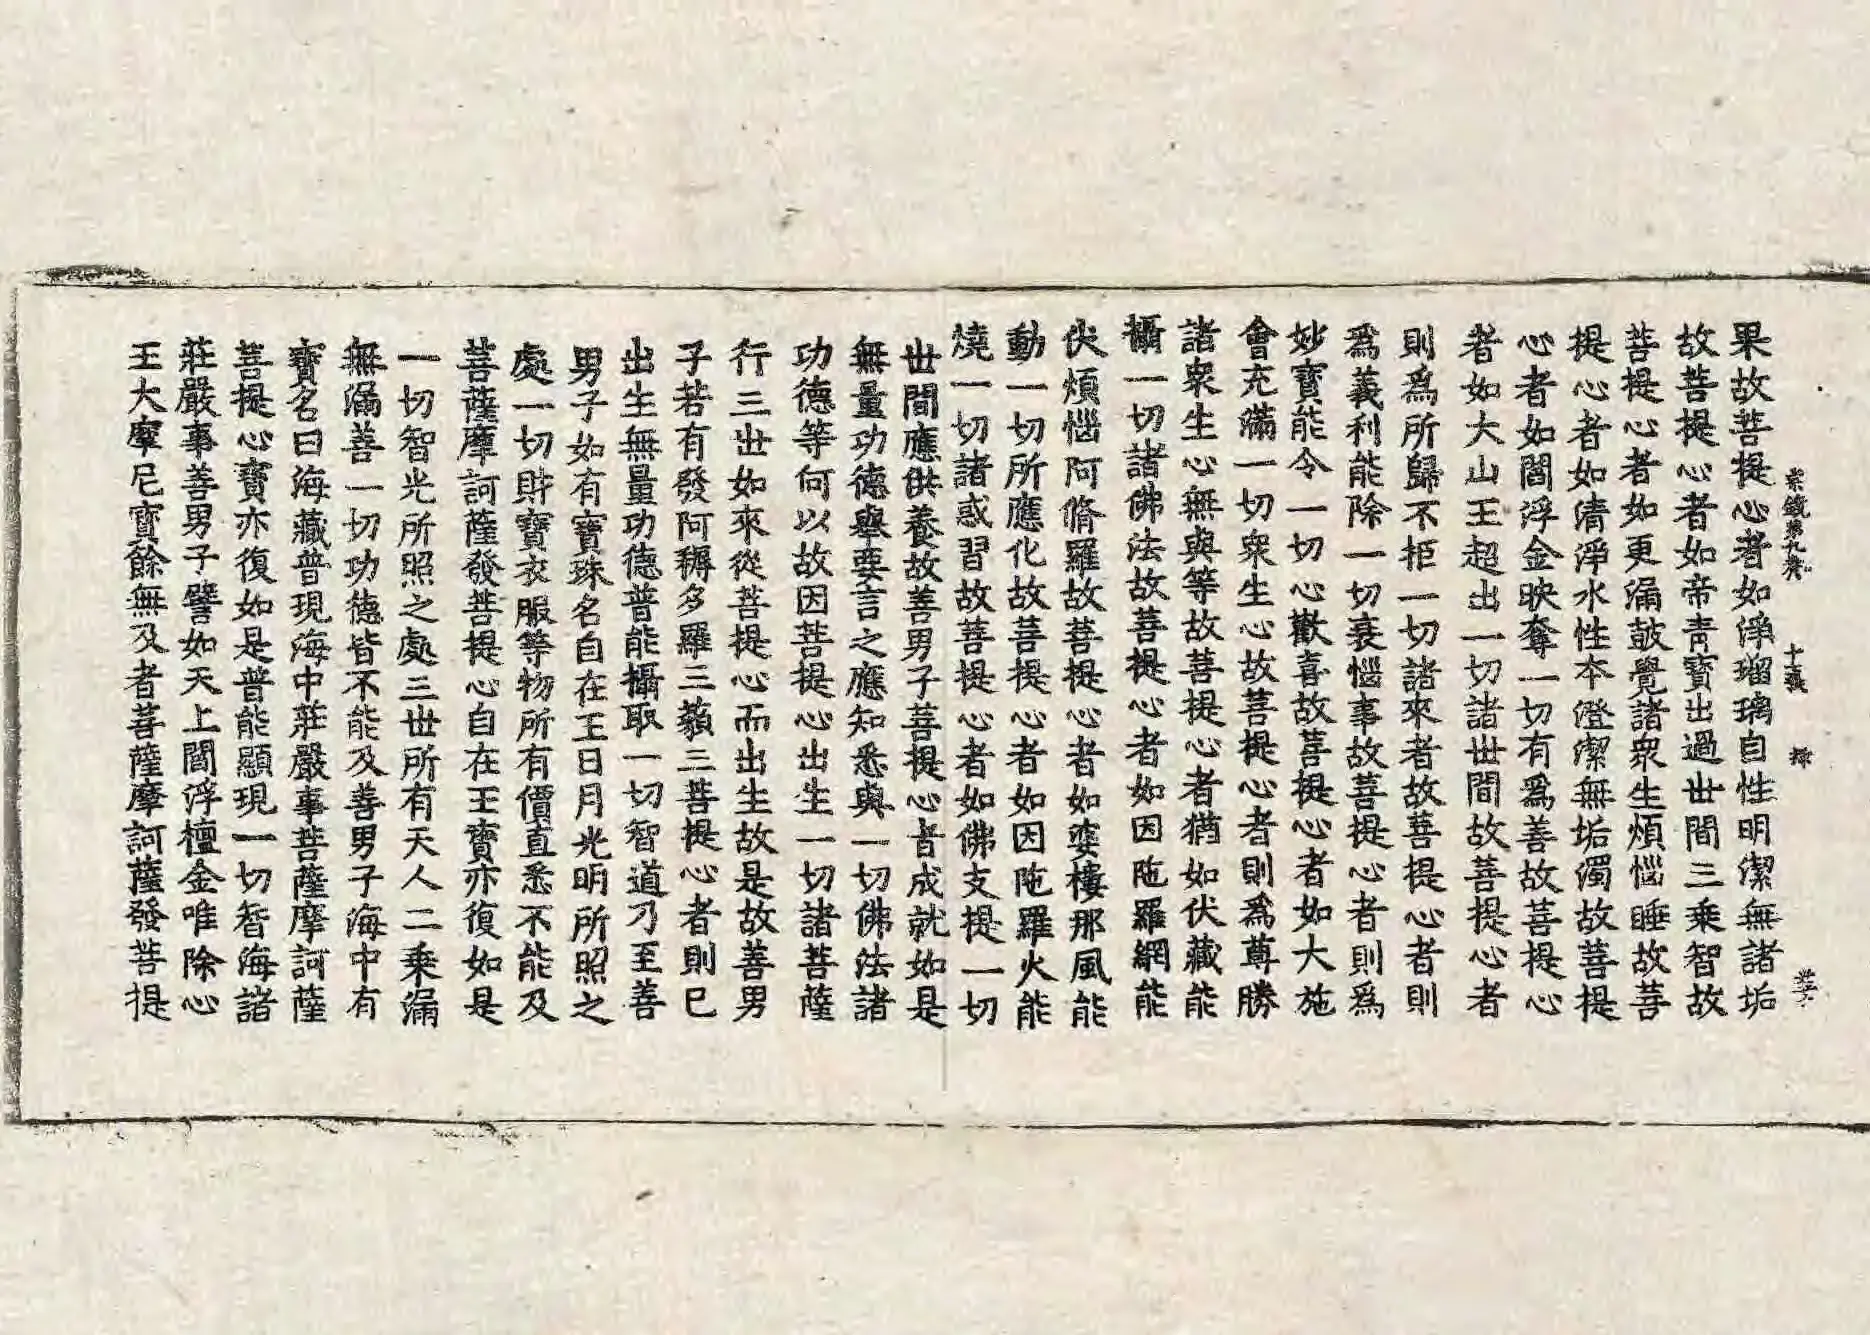 果故菩提心者如淨瑠璃自性明潔無諸垢
故菩提心者如帝青寶出過世間三乘智故
菩提心者如更漏鼓覺諸衆生煩惱睡故菩
提心者如清淨水性本澄潔無垢濁故菩提
心者如閻浮金映奪一切有爲善故菩提心
者如大山王超出一切諸世間故菩提心者
則爲所歸不拒一切諸來者故菩提心者則
爲義利能除一切衰惱事故菩提心者則爲
妙寶能令一切心歡喜故菩提心者如大施
會充滿一切衆生心故菩提心者則爲尊勝
諸衆生心無與等故菩提心者猶如伏藏能
攝一切諸佛法故菩提心者如因陁羅網能
伏煩惱阿脩羅故菩提心者如婆樓那風能
動一切所應化故菩提心者如因陁羅火能
燒一切諸惑習故菩提心者如佛支提一切
世間應供養故善男子菩提心者成就如是
無量功德舉要言之應知悉與一切佛法諸
功德等何以故因菩提心出生一切諸菩薩
行三世如來從菩提心而出生故是故善男
子若有發阿耨多羅三藐三菩提心者則已
出生無量功德普能攝取一切智道乃至善
男子如有寶珠名自在王日月光明所照之
處一切財寶衣服等物所有價直悉不能及
菩薩摩訶薩發菩提心自在王寶亦復如是
一切智光所照之處三世所有天人二乘漏
無漏善一切功德皆不能及善男子海中有
寶名曰海藏普現海中莊嚴事菩薩摩訶薩
菩提心寶亦復如是普能顯現一切智海諸
莊嚴事善男子譬如天上閻浮檀金唯除心
王大摩尼寶餘無及者菩薩摩訶薩發菩提